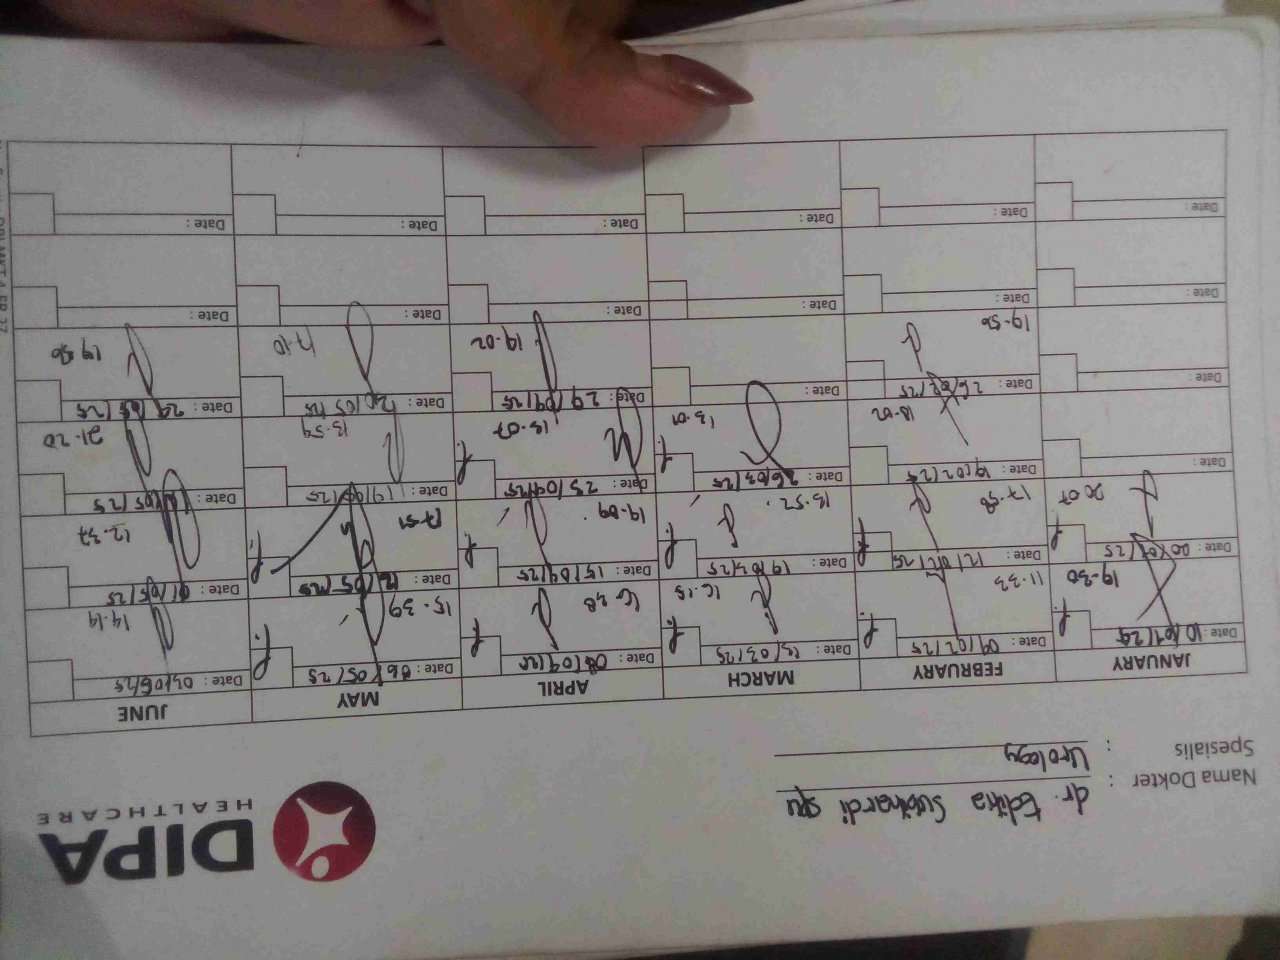 DIPA
HEALTHCARE
Nama Dokter : dr. Editia Sus Spu
Spesialis : Urology
JANUARY FEBRUARY MARCH APRIL MAY JUNE
Date: 10/01/25 Date: 04/02/25 Date: /03/25 Date: 08/04/25 Date: 06/05/25 Date: 03/06/25
19-30 11-33 16-15 16 28 15-39 14-14
Date: 20/01/25 Date: 12/02/25 Date: 19/03/25 Date: 15/04/25 Date: 12/05/25 Date: /05/25
20 07 17-50 13-52 19-09 17-51 12-37
Date: Date: 19/02/25 Date: 26/03/25 Date: 23/04/25 Date: 19/05/25 Date: /05/25
18-02 13-01 13-07 13-59 21-20
Date: Date: 26/02/25 Date: Date: 29/04/25 Date: 20/05/25 Date: 29/05/25
19-50 19-02 17-10 19-50
Date: Date: Date: Date: Date: Date:
Date: Date: Date: Date: Date: Date: